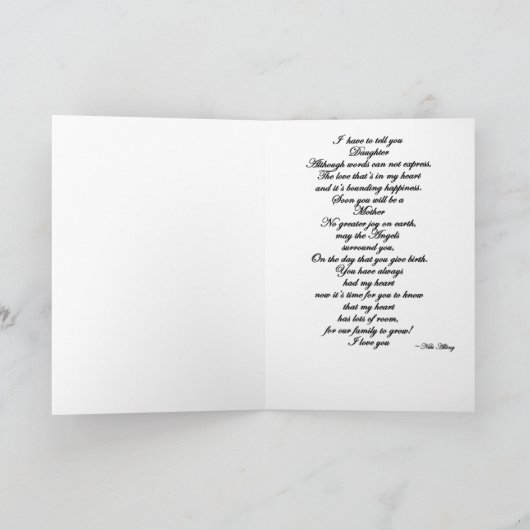 I have to tell you
Daughter
Although words can not express,
The love that's in my heart
and it's bounding happiness.
Soon you will be a
Mother
No greater joy on earth,
may the Angels
surround you,
On the day that you give birth.
You have always
had my heart
now it's time for you to know
that my heart
has lots of room,
for our family to grow!
I love you
~Niki